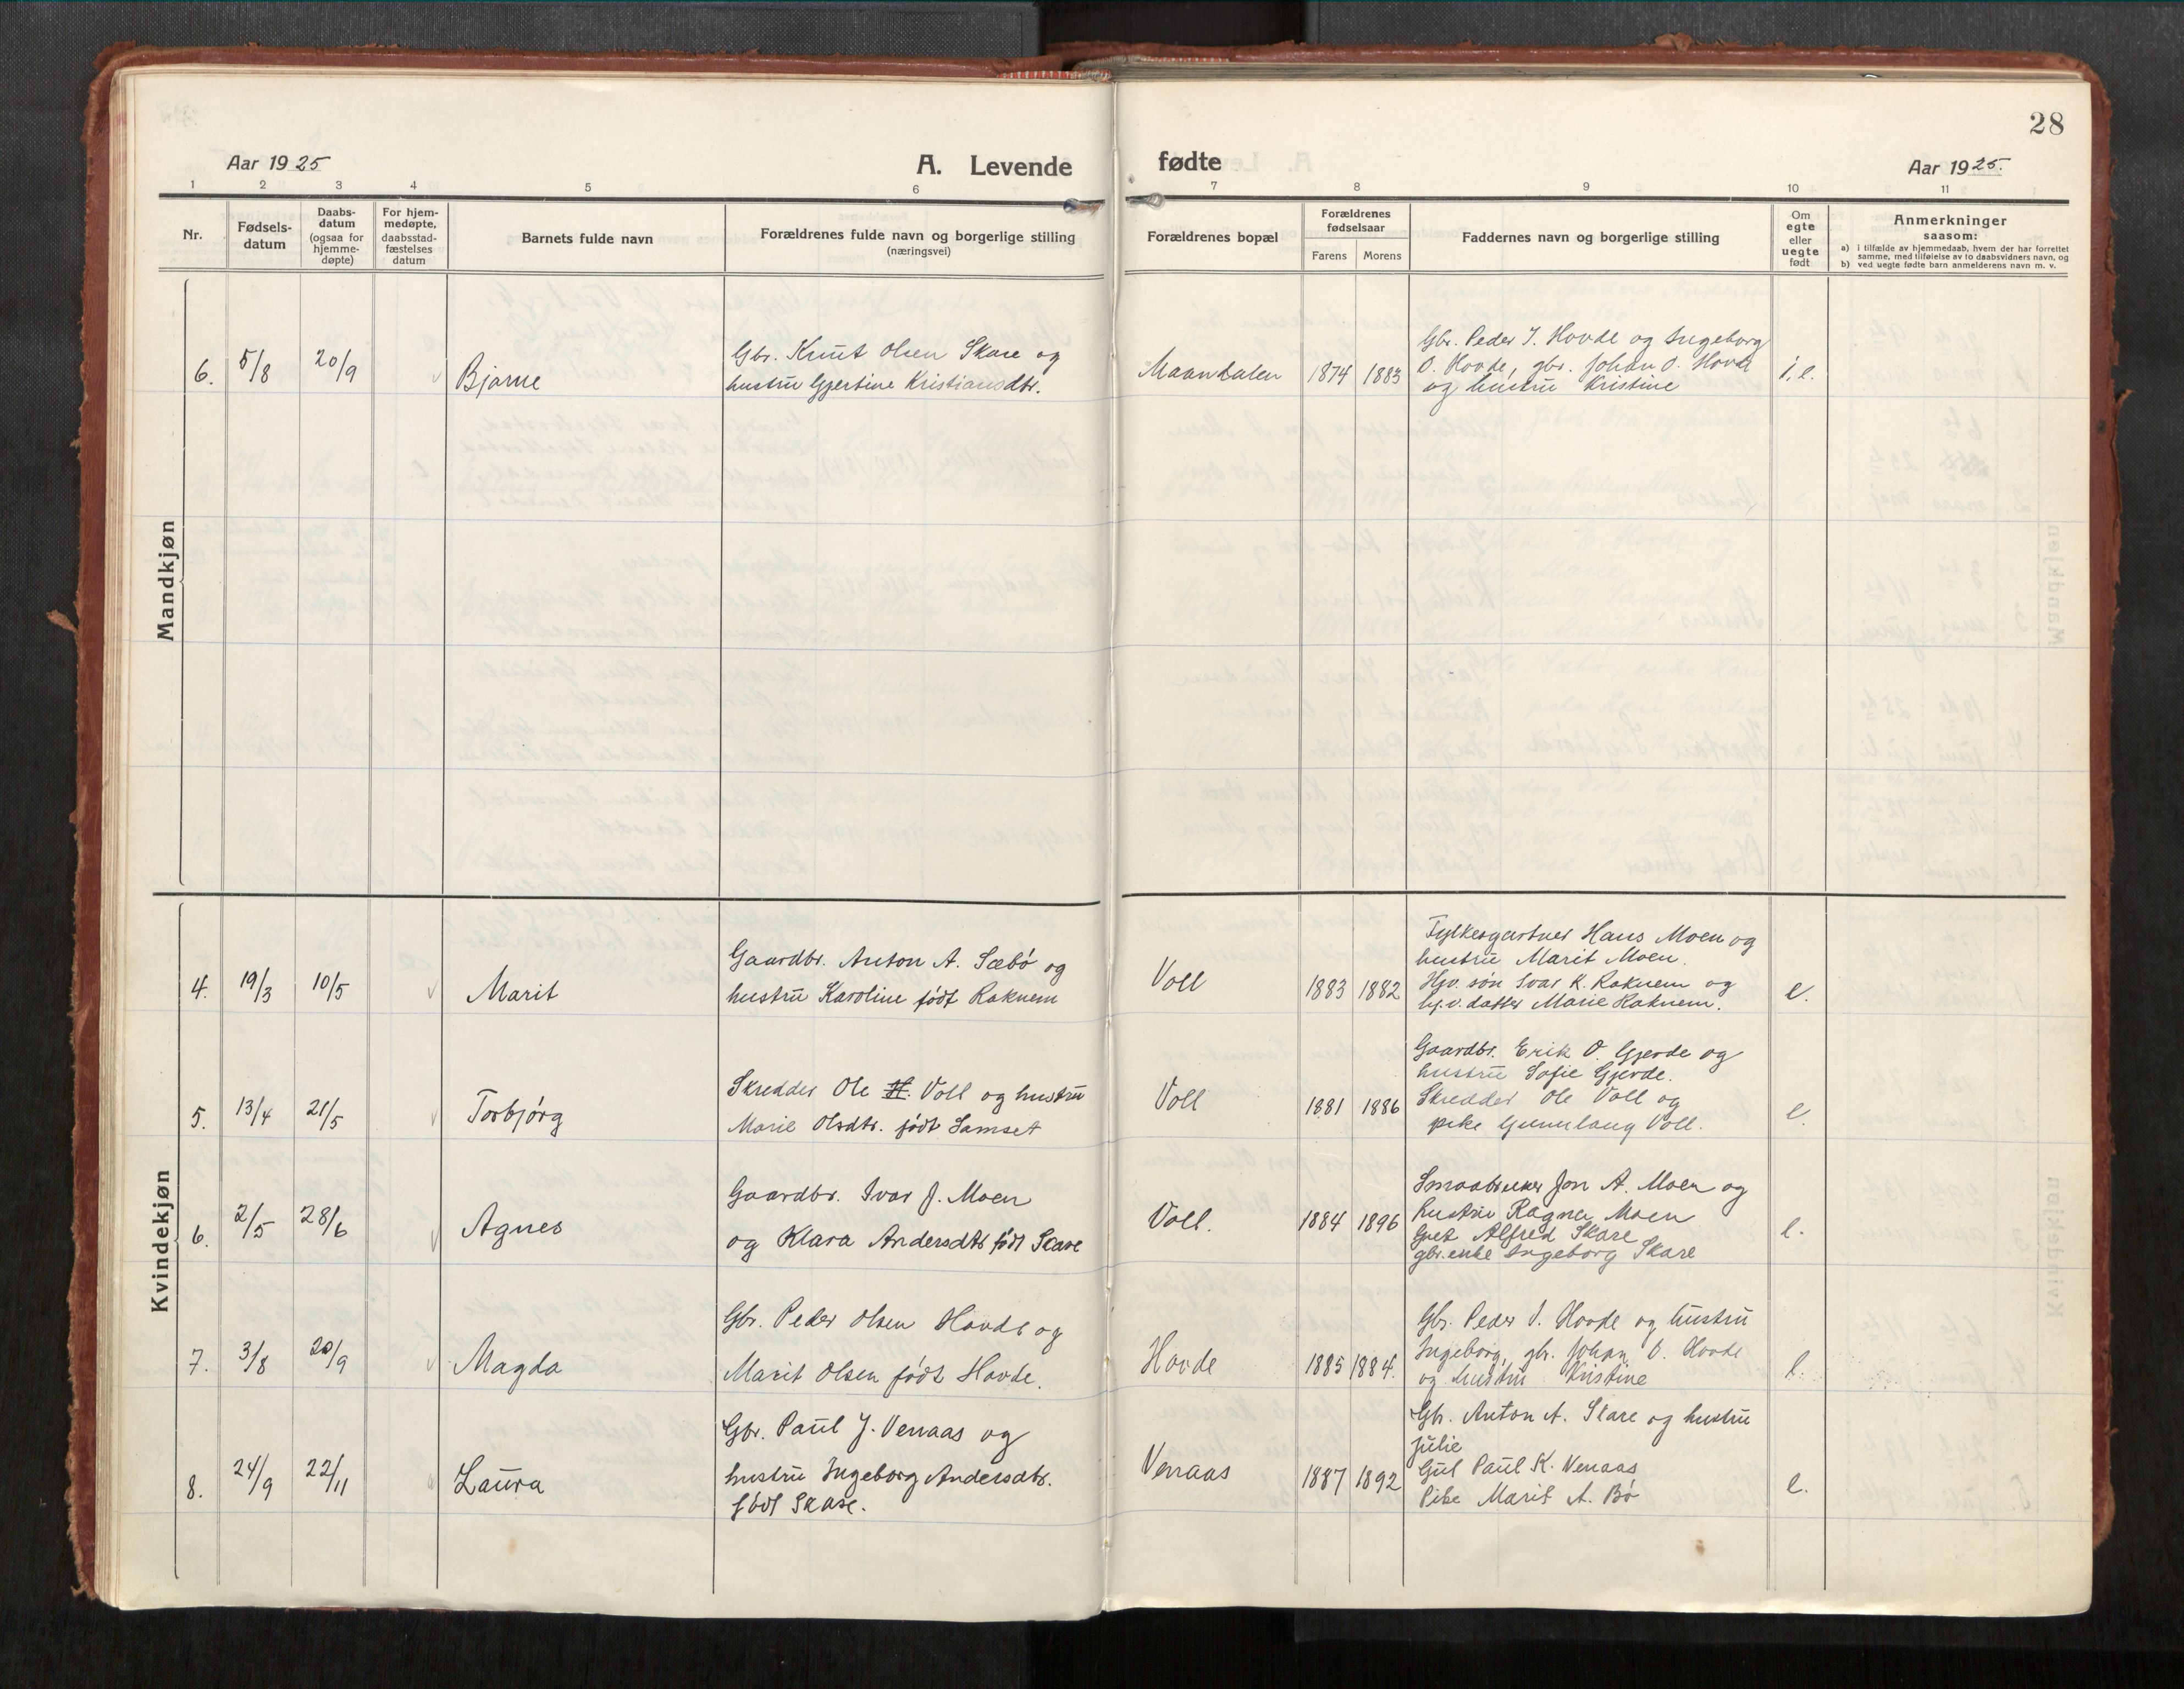 28
Aar 1925
A. Levende
fødte
Aar 1925.
1 2 3 4 5 6 7 8 9 10 11
Nr.
Fødsels-
datum
Daabs-
datum
(ogsaa for
hjemme-
døpte)
For hjem-
medøpte,
daabsstad-
fæstelses
datum
Barnets fulde navn
Forældrenes fulde navn og borgerlige stilling
(næringsvei)
Forældrenes bopæl
Forældrenes
fødselsaar
Farens Morens
Faddernes navn og borgerlige stilling
Om
egte
eller
uegte
født
Anmerkninger
saasom:
a) i tilfælde av hjemmedaab, hvem der har forrettet
samme, med tilføielse av to daabsvidners navn, og
b) ved uegte fødte barn anmelderens navn m. v.
Mandkjøn
6. 5/8 20/9 Bjarne
Gbr. Knut Olsen Skare og
hustru Gjertine Kristiansdtr.
Maandalen 1874 1883
Gbr. Peder J. Hovde og Ingeborg
O. Hovde, gbr. Johan O. Hovde
og hustru Kristine
e.
Kvindekjøn
4. 19/3 10/5 Marit
Gaardbr. Anton A. Sæbö og
hustru Karoline født Raknem
Voll 1883 1882
Fylkesgartner Hans Moen og
hustru Marit Moen.
Hjv. søn Ivar K. Raknem og
hj.v. datter Marie Raknem.
e.
5. 13/4 21/5 Torbjørg
Skredder Ole H. Voll og hustru
Marie Olsdtr. født Samset
Voll 1881 1886
Gaardbr. Erik O. Gjerde og
hustru Sofie Gjerde.
Skredder Ole Voll og
pike Gunnlaug Voll.
e.
6. 2/5 28/6 Agnes
Gaardbr. Ivar J. Moen
og Klara Andersdtr født Skare
Voll. 1884 1896
Smaabruker Jon A. Moen og
hustru Ragna Moen
Alfred Skare
gbr.enke Ingeborg Skare
e.
7. 3/8 20/9 Magda
Gbr. Peder Olsen Hovde og
Marit Olsen født Hovde.
Hovde 1885 1884.
Gbr. Peder J. Hovde og hustru
Ingeborg, gbr. Johan O. Hovde
og hustru Kristine
e.
8. 24/9 22/11 Laura
Gbr. Paul J. Venaas og
hustru Ingeborg Andersdtr.
født Skare.
Venaas 1887 1892
Gbr. Anton A. Skare og hustru
Julie
Gut Paul K. Venaas
Pike Marit A. Bö
e.